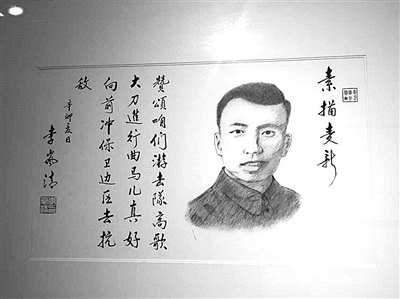 素描麦新
赞頌咱们游击隊高歌
大刀進行曲马儿真好
向前冲保卫边区去抗
敌
辛卯夏日
李岚清